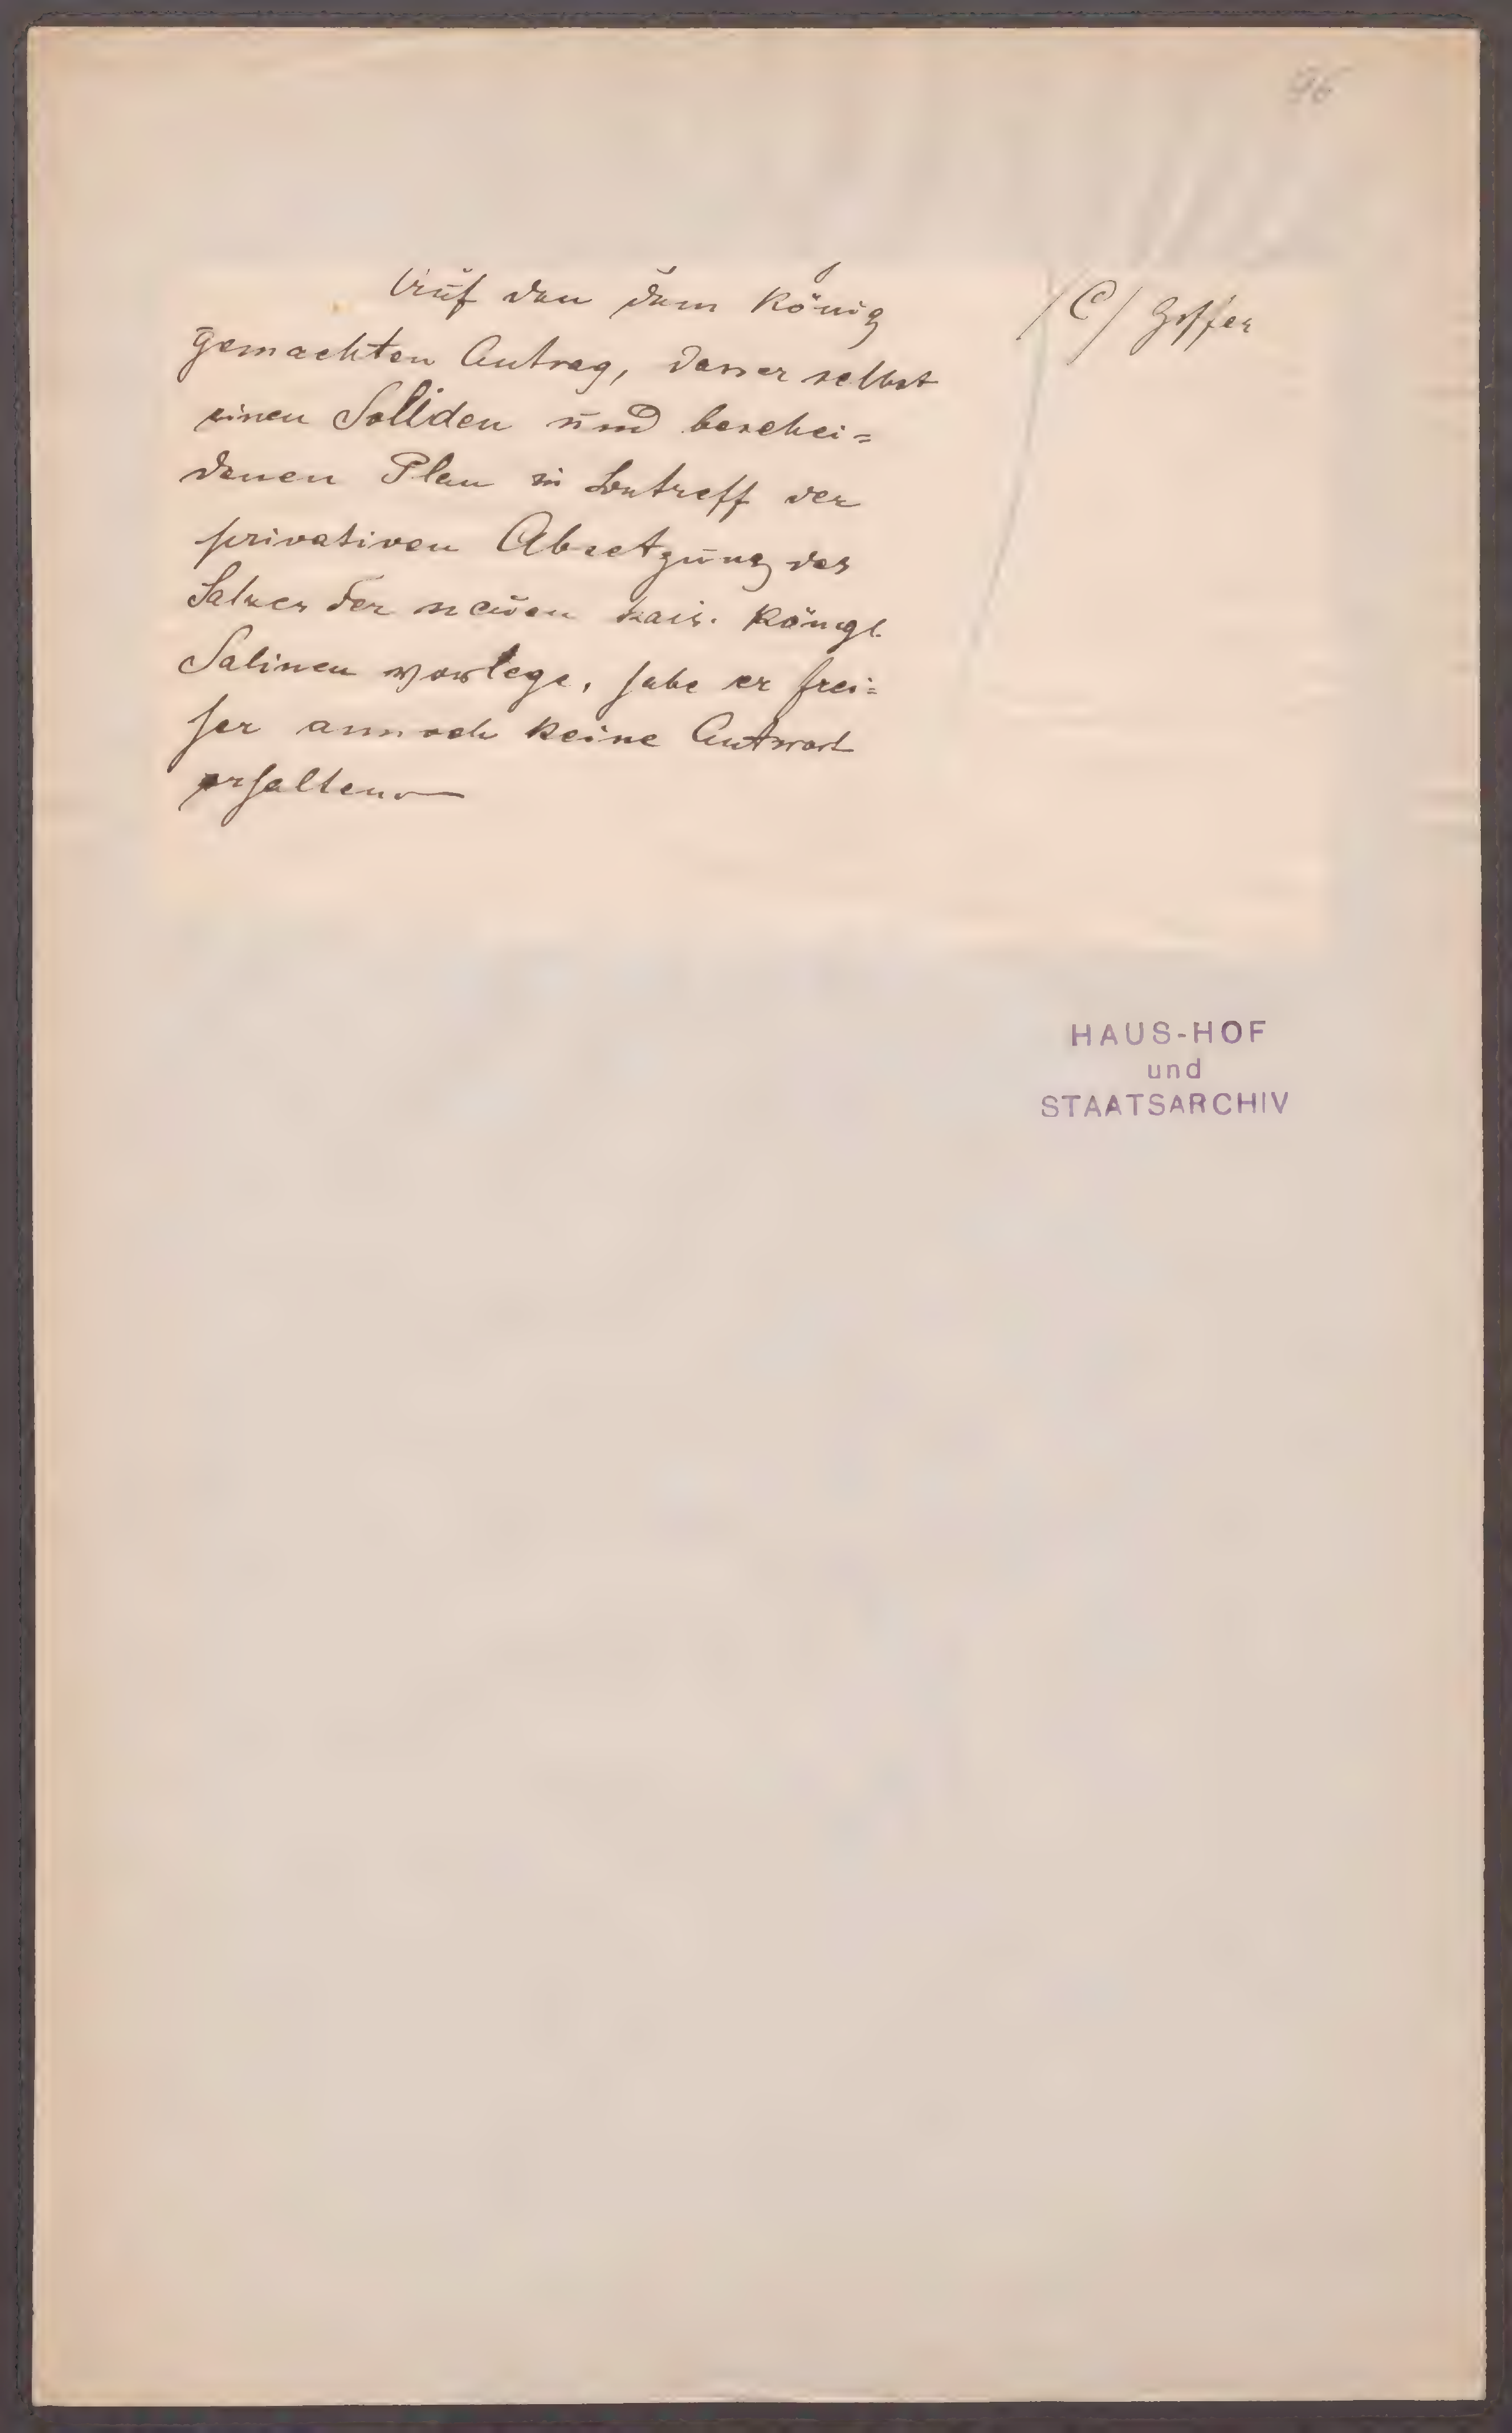 96
Auf den dem König
gemachten Antrag, dasser selbst
einen Soliden und beschei=
denen Plan in Betreff der
privativen Absetzung des
Salzes der neuen kais. königl.
Salinen vorlege, habe er frei=
her annoch keine Antwort
erhalten.
/C/
HAUS-HOF
und
STAATSARCHIV